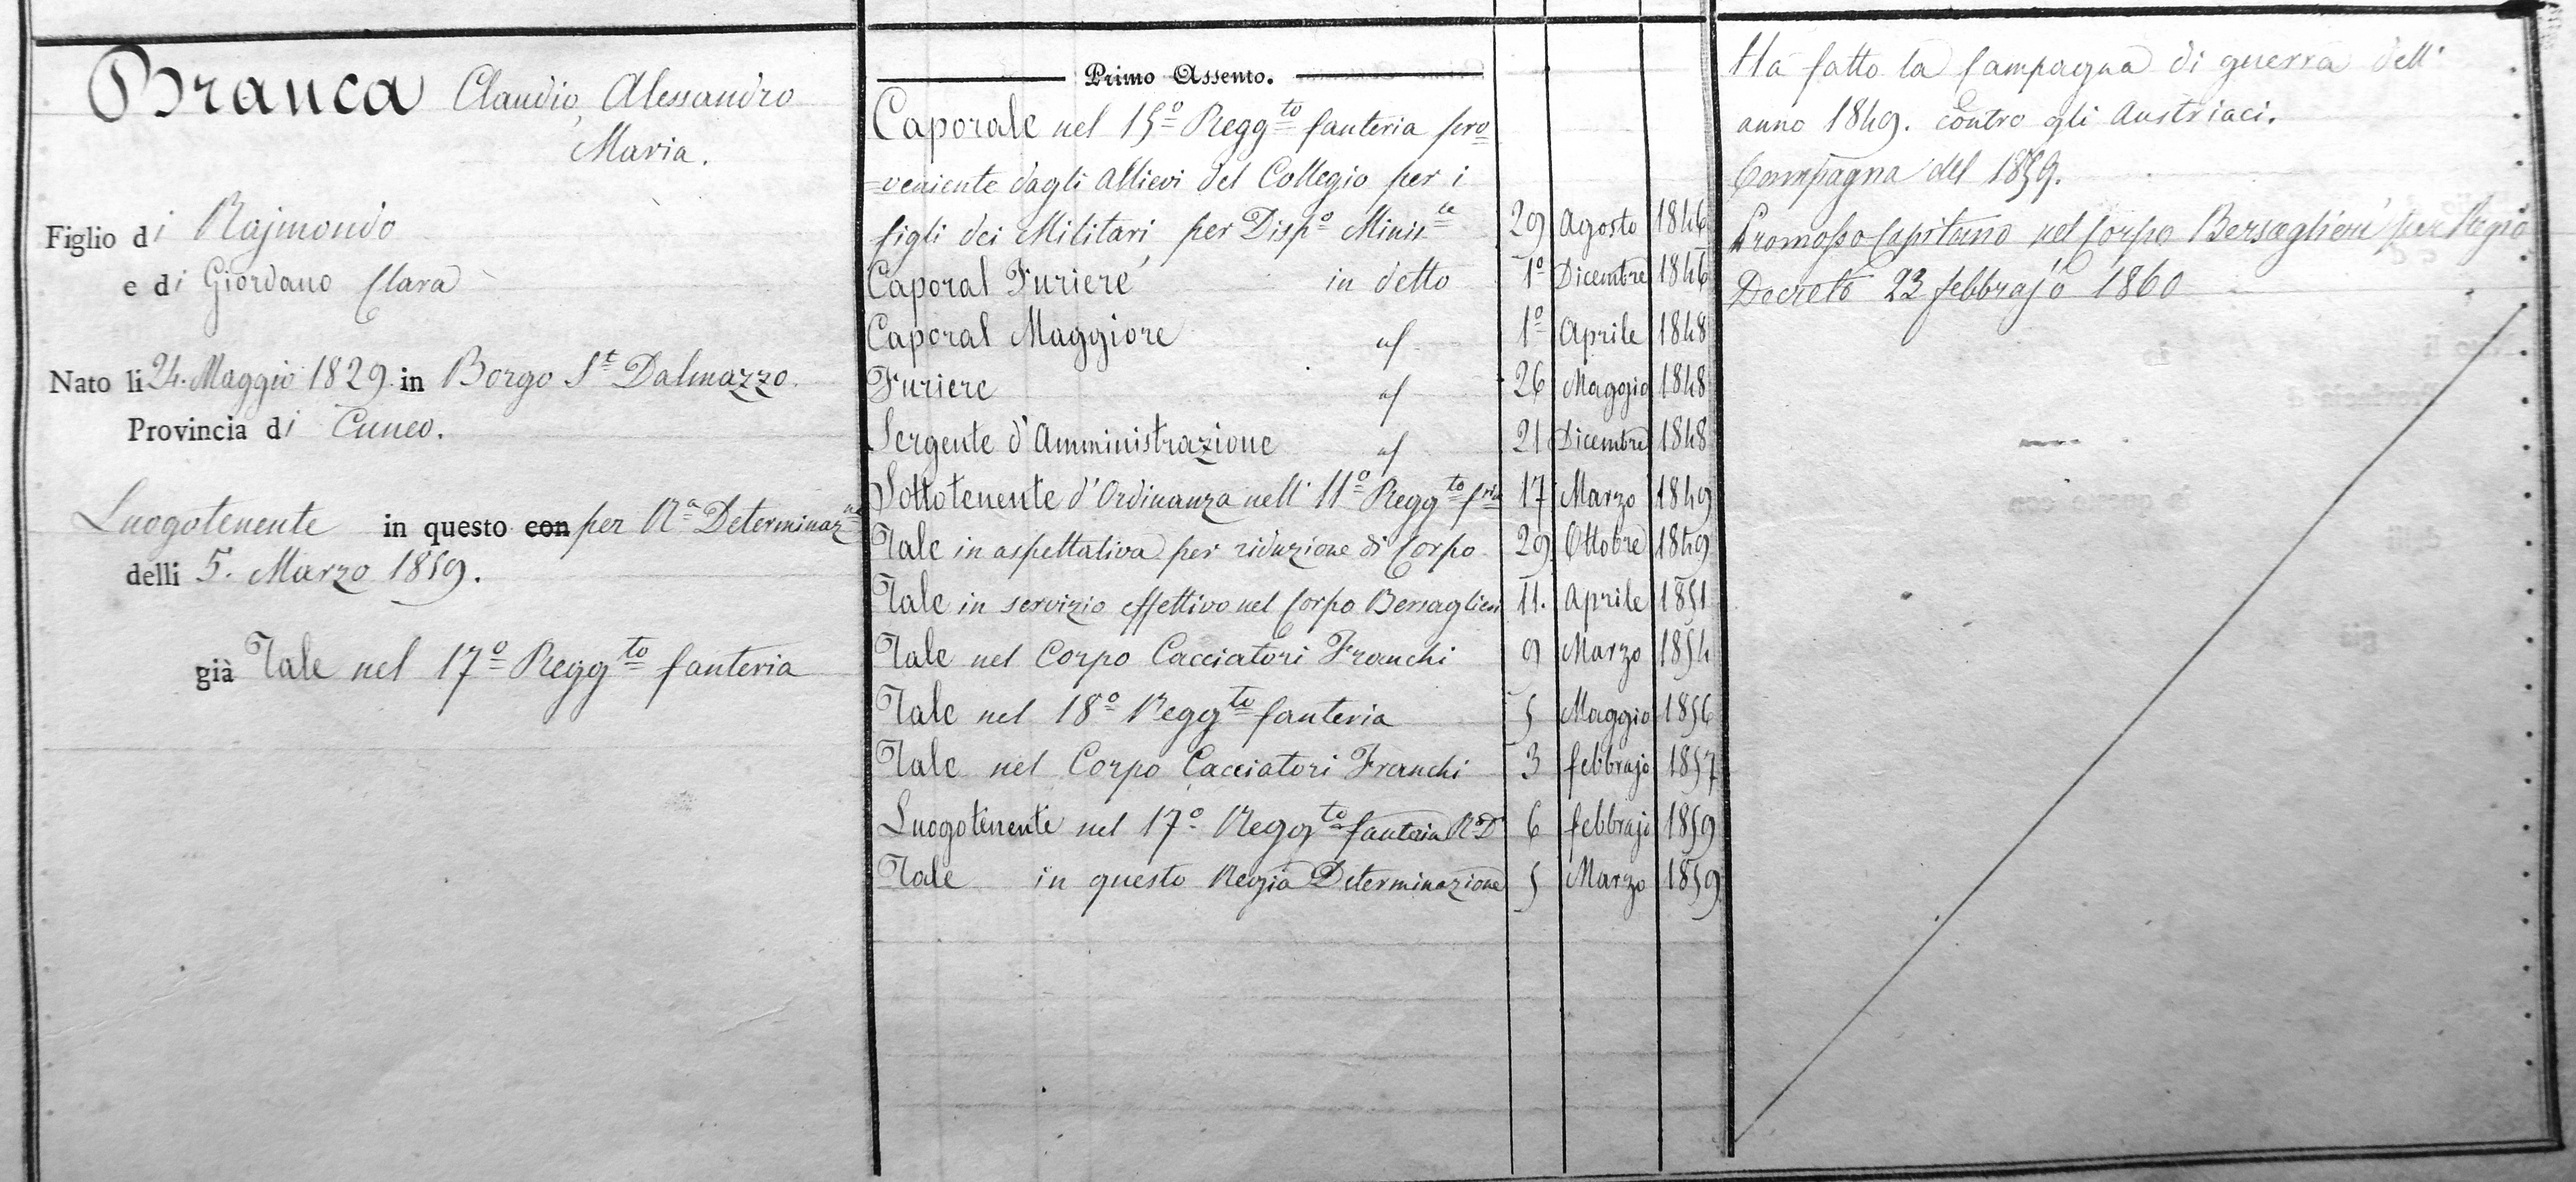 Branca Claudio, Alessandro
Maria.
Figlio di Rajmondo
e di Giordano Clara
Nato li 24. Maggio 1829. in Borgo St Dalmazzo.
Provincia di Cuneo.
Luogotenente in questo con per Ra Determinazne
delli 5. Marzo 1859.
già Tale nel 17o Reggto fanteria
Primo Assento.
Caporale nel 15o Reggto fanteria pro=
=veniente dagli Allievi del Collegio per i
figli dei Militari, per Dispo Ministe 29 Agosto 1846
Caporal Furiere in detto 1o Dicembre 1846
Caporal Maggiore 1o Aprile 1848
Furiere 26 Maggio 1848
Sergente d'Amministrazione 21 Dicembre 1848
Sottotenente d'Ordinanza nell' 11o Reggto fria 17 Marzo 1849
Tale in aspettativa per riduzione di Corpo 29 Ottobre 1849
Tale in servizio effettivo nel Corpo Bersaglieri 11. Aprile 1851
Tale nel Corpo Cacciatori Franchi 9 Marzo 1854
Tale nel 18o Reggto fanteria 5 Maggio 1856
Tale nel Corpo Cacciatori Franchi 3 febbrajo 1857
Luogotenente nel 17o Reggto fanteria R D 6 febbrajo 1859
Tale in questo Regia Determinazione 5 Marzo 1859
Ha fatto la Campagna di guerra dell'
anno 1849. contro gli Austriaci.
Campagna del 1859.
Promosso Capitano nel Corpo Bersaglieri per Regio
Decreto 23 febbrajo 1860